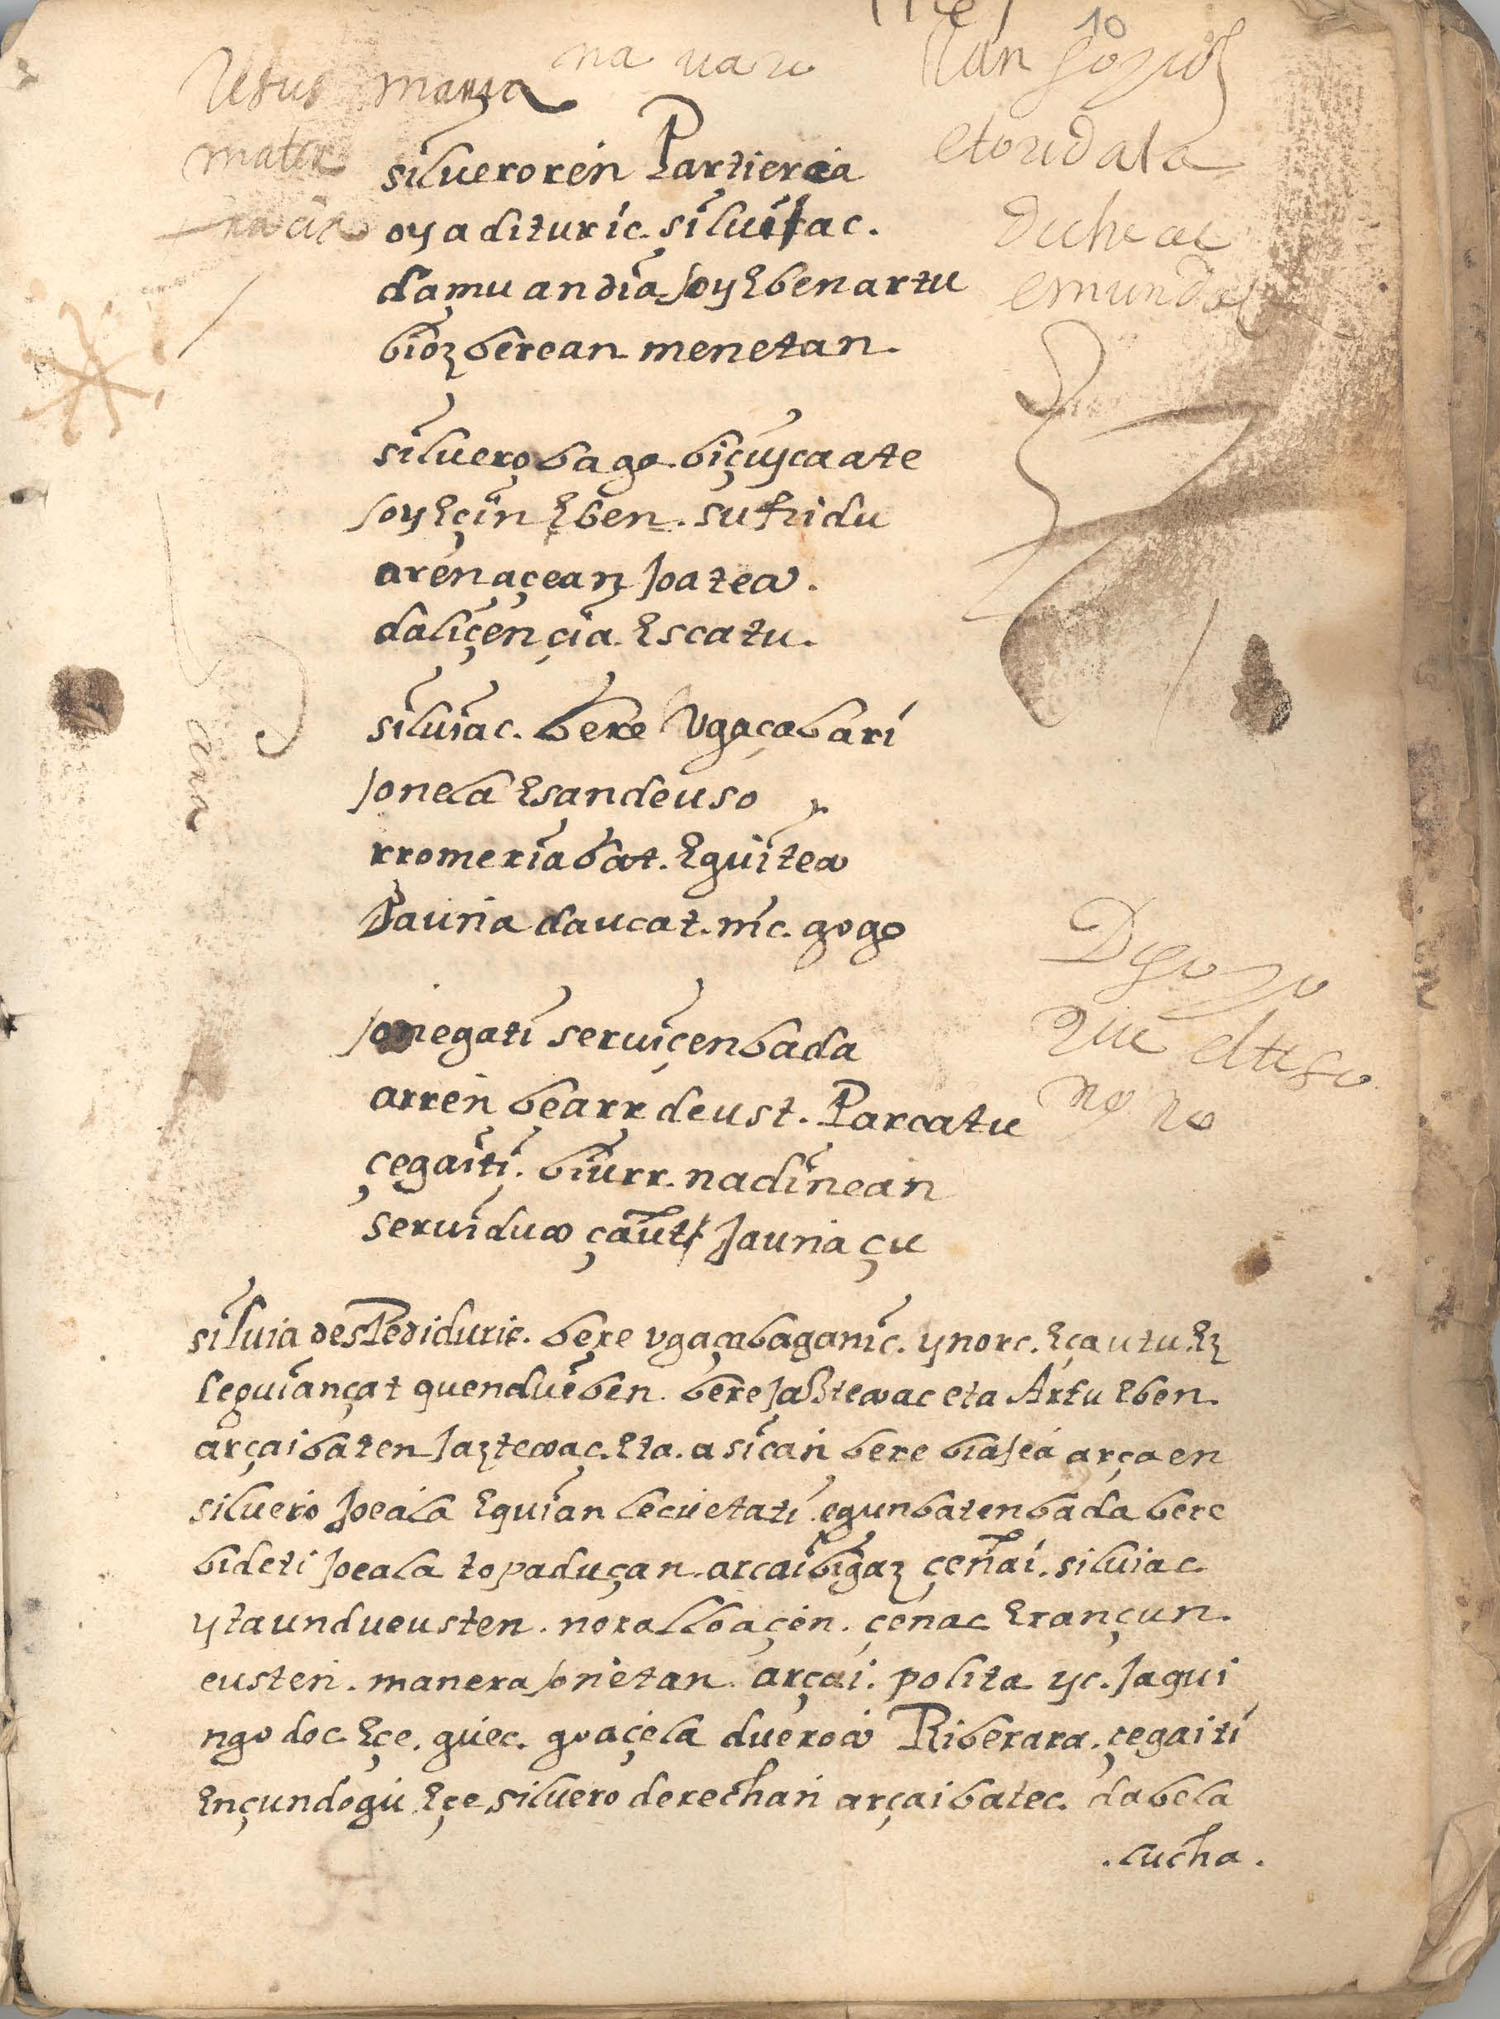 10
Jesus maria
na uaro
mater
silueroren Partiercia
oyadituric. siluiac.
damu andia joyEbenartu
bioz berean menetan.
etorridala
emunda
siluero bago. biçuycaate
joyEçin Eben. sufridu
aren açean joatea.
daliçençia Escatu.
siluiac. bere Vgaçabari
jonela Esandeuso
rromeria bat. Eguitea
Jauria daucat. nic. gogo
ara
jonegati seruiçenbada
arren bearr deust. Parcatu
çegaiti. biurr. nadinean
seruidua çaut Jauria çu
que
no no
siluia desPediduric. bere vgaçabaganic. ynorc. Eçautu. Ez
leguiançat quendueben. bere jazteaac eta Artu Eben.
arçaibaten jazteaac. Eta. asican bere biajea arçaen
siluero joeala Eguian lecuetati. egunbatenbada bere
bideti joeala topaduçan. arçaibigaz çeñai. siluiac
ytaundueusten. noralloaçen. çenac Erançun.
eusten. manera jonetan arçai. polita yc. jagui
ngo doc Eçe. guec. goaçela dueroa Riberara. çegaiti
Ençundogu Eçe siluero derechan arçaibatec. dabela
.lucha.